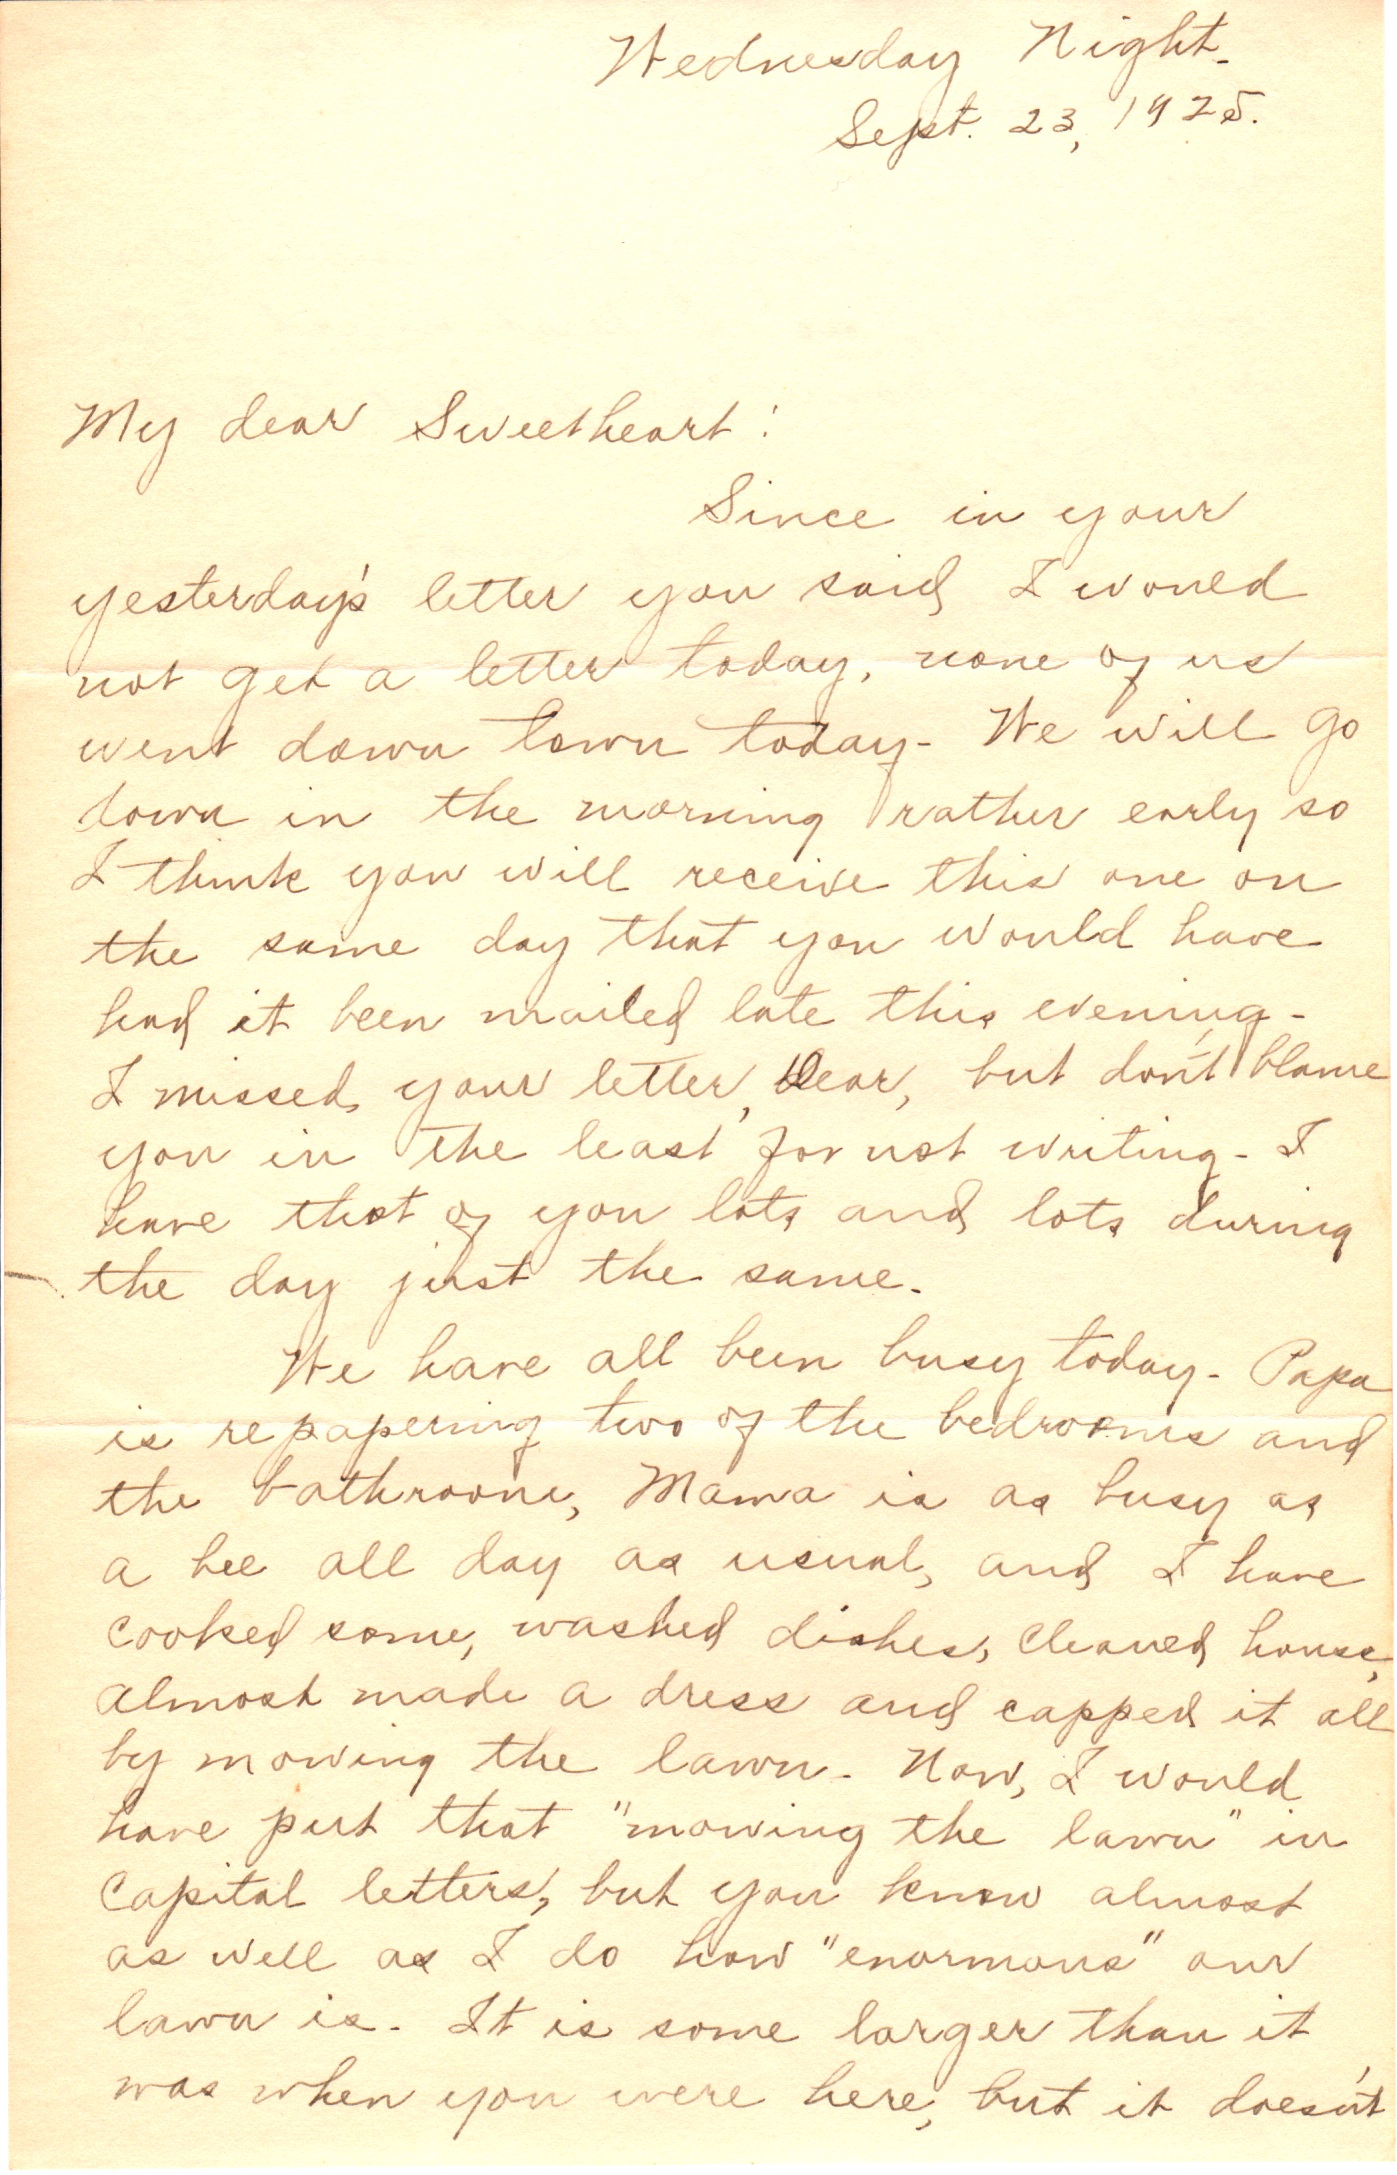 Wednesday Night.
Sept. 23, 1925.
My dear Sweetheart:
Since in your
yesterday's letter you said I would
not get a letter today, none of us
went down town today. We will go
down in the morning rather early so
I think you will receive this one on
the same day that you would have
had it been mailed late this evening.
I missed your letter, Dear, but don't blame
you in the least for not writing. I
have thot of you lots and lots during
the day just the same.
We have all been busy today. Papa
is repapering two of the bedrooms and
the bathroom, Mama is as busy as
a bee all day as usual, and I have
cooked some, washed dishes, cleaned house,
almost made a dress and capped it all
by mowing the lawn. Now, I would
have put that "mowing the lawn" in
capital letters, but you know almost
as well as I do how "enormous" our
lawn is. It is some larger than it
was when you were here, but it doesn't